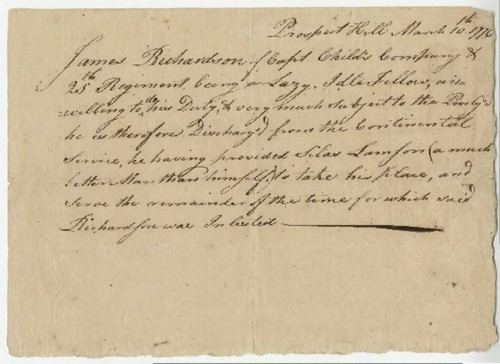 Prospect Hill March 10th. 1776
James Richardson of Capt Child's Company &
25th Regiment, being a Lazy, Idle Fellow, un
willing to his Duty, & very much subject to the
he is therefore Discharg'd from the Continental
Service, he having provided Silas Lamson (a much
better Man than himself) to take his place, and
serve the remainder of the time for which said
Richardson was Inlisted